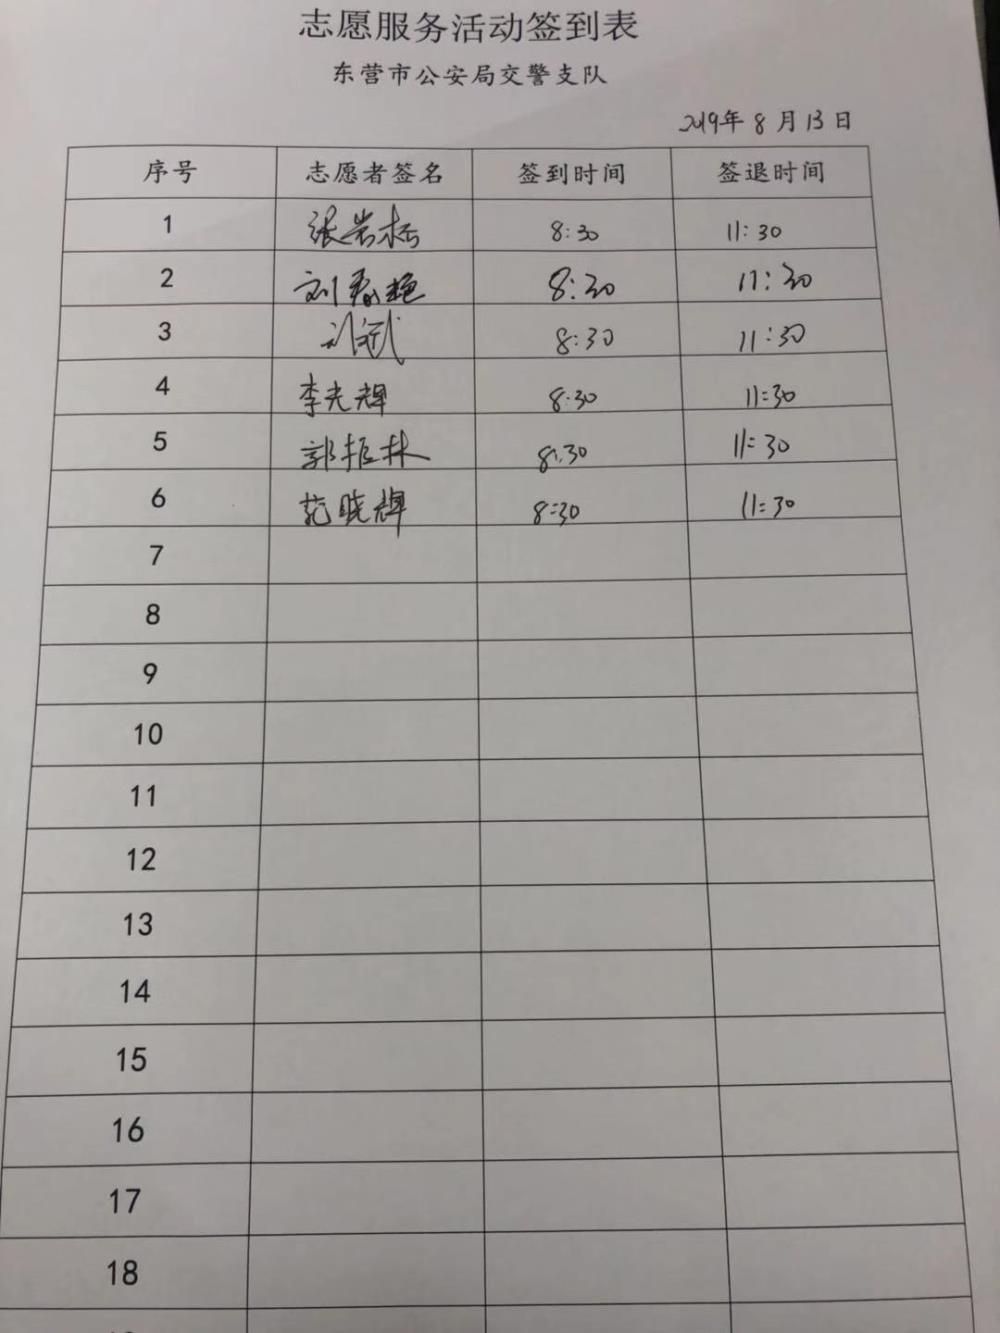 志愿服务活动签到表
东营市公安局交警支队
2019年 8 月 13 日
序号 志愿者签名 签到时间 签退时间
1 张岩松 8:30 11:30
2 刘春艳 8:30 11:30
3 8:30 11:30
4 李光辉 8:30 11:30
5 郭振林 8:30 11:30
6 范晓辉 8:30 11:30
7
8
9
10
11
12
13
14
15
16
17
18